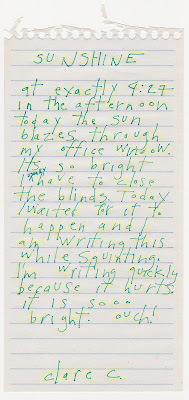 SUNSHINE
at exactly 4:27
in the afternoon
today the sun
blazes through
my office window.
It's so bright
I have to close
the blinds. Today
I waited for it to
happen and I
am writing this
while squinting.
I'm writing quickly
because it hurts.
it is sooo
bright. ouch!
clare c.